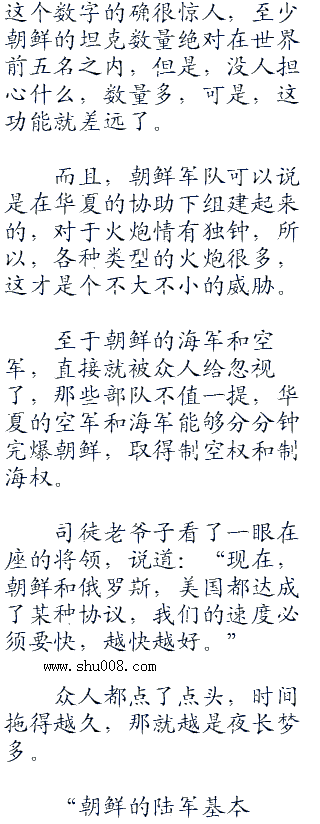 这个数字的确很惊人，至少
朝鲜的坦克数量绝对在世界
前五名之内，但是，没人担
心什么，数量多，可是，这
功能就差远了。
而且，朝鲜军队可以说
是在华夏的协助下组建起来
的，对于火炮情有独钟，所
以，各种类型的火炮很多，
这才是个不大不小的威胁。
至于朝鲜的海军和空
军，直接就被众人给忽视
了，那些部队不值一提，华
夏的空军和海军能够分分钟
完爆朝鲜，取得制空权和制
海权。
司徒老爷子看了一眼在
座的将领，说道：“现在，
朝鲜和俄罗斯，美国都达成
了某种协议，我们的速度必
须要快，越快越好。”
www.shu008.com
众人都点了点头，时间
拖得越久，那就越是夜长梦
多。
“朝鲜的陆军基本